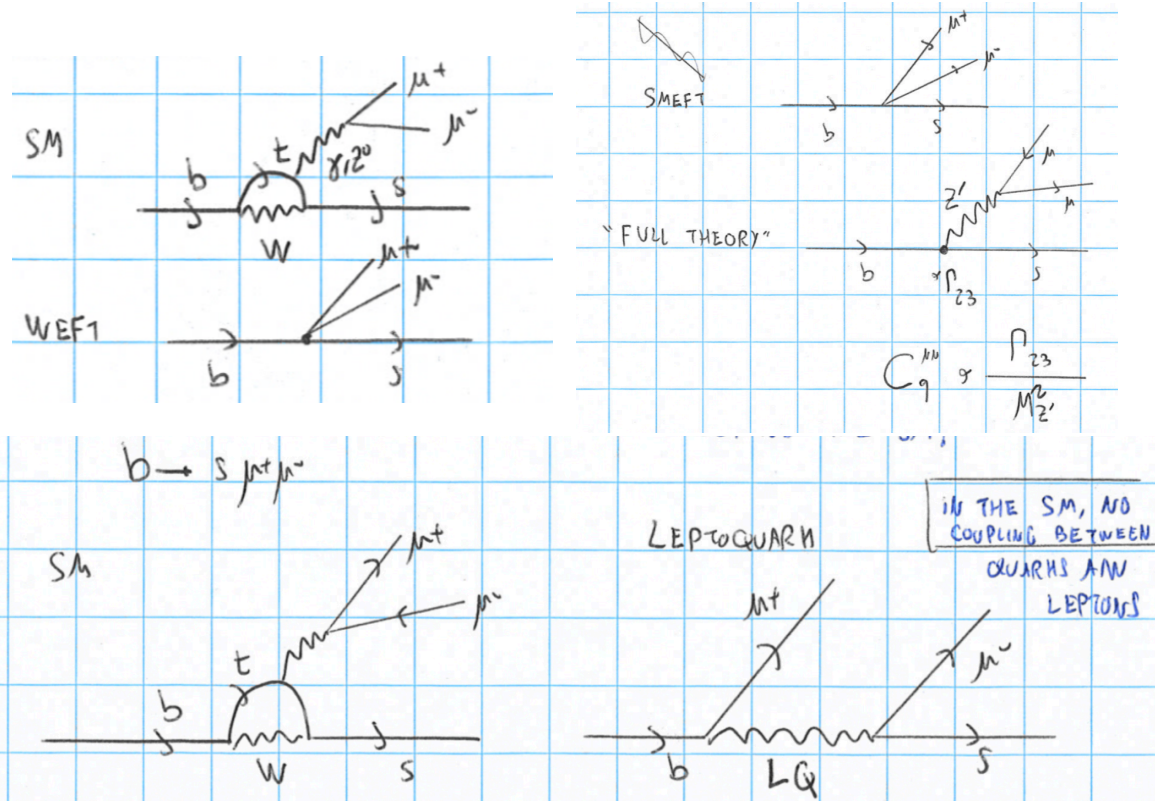 SM
b
t
γ, Z⁰
μ+
μ-
s
W
WEFT
μ+
μ-
b
s
SMEFT
μ+
μ-
b
s
"FULL THEORY"
Z'
μ
μ
b
s
Γ₂₃
C₉^μμ ∝ Γ₂₃ / M²_Z'
b → s μ+ μ-
SM
μ+
μ-
t
b
W
s
LEPTOQUARK
μ+
μ-
b
LQ
s
IN THE SM, NO
COUPLING BETWEEN
QUARKS AND
LEPTONS